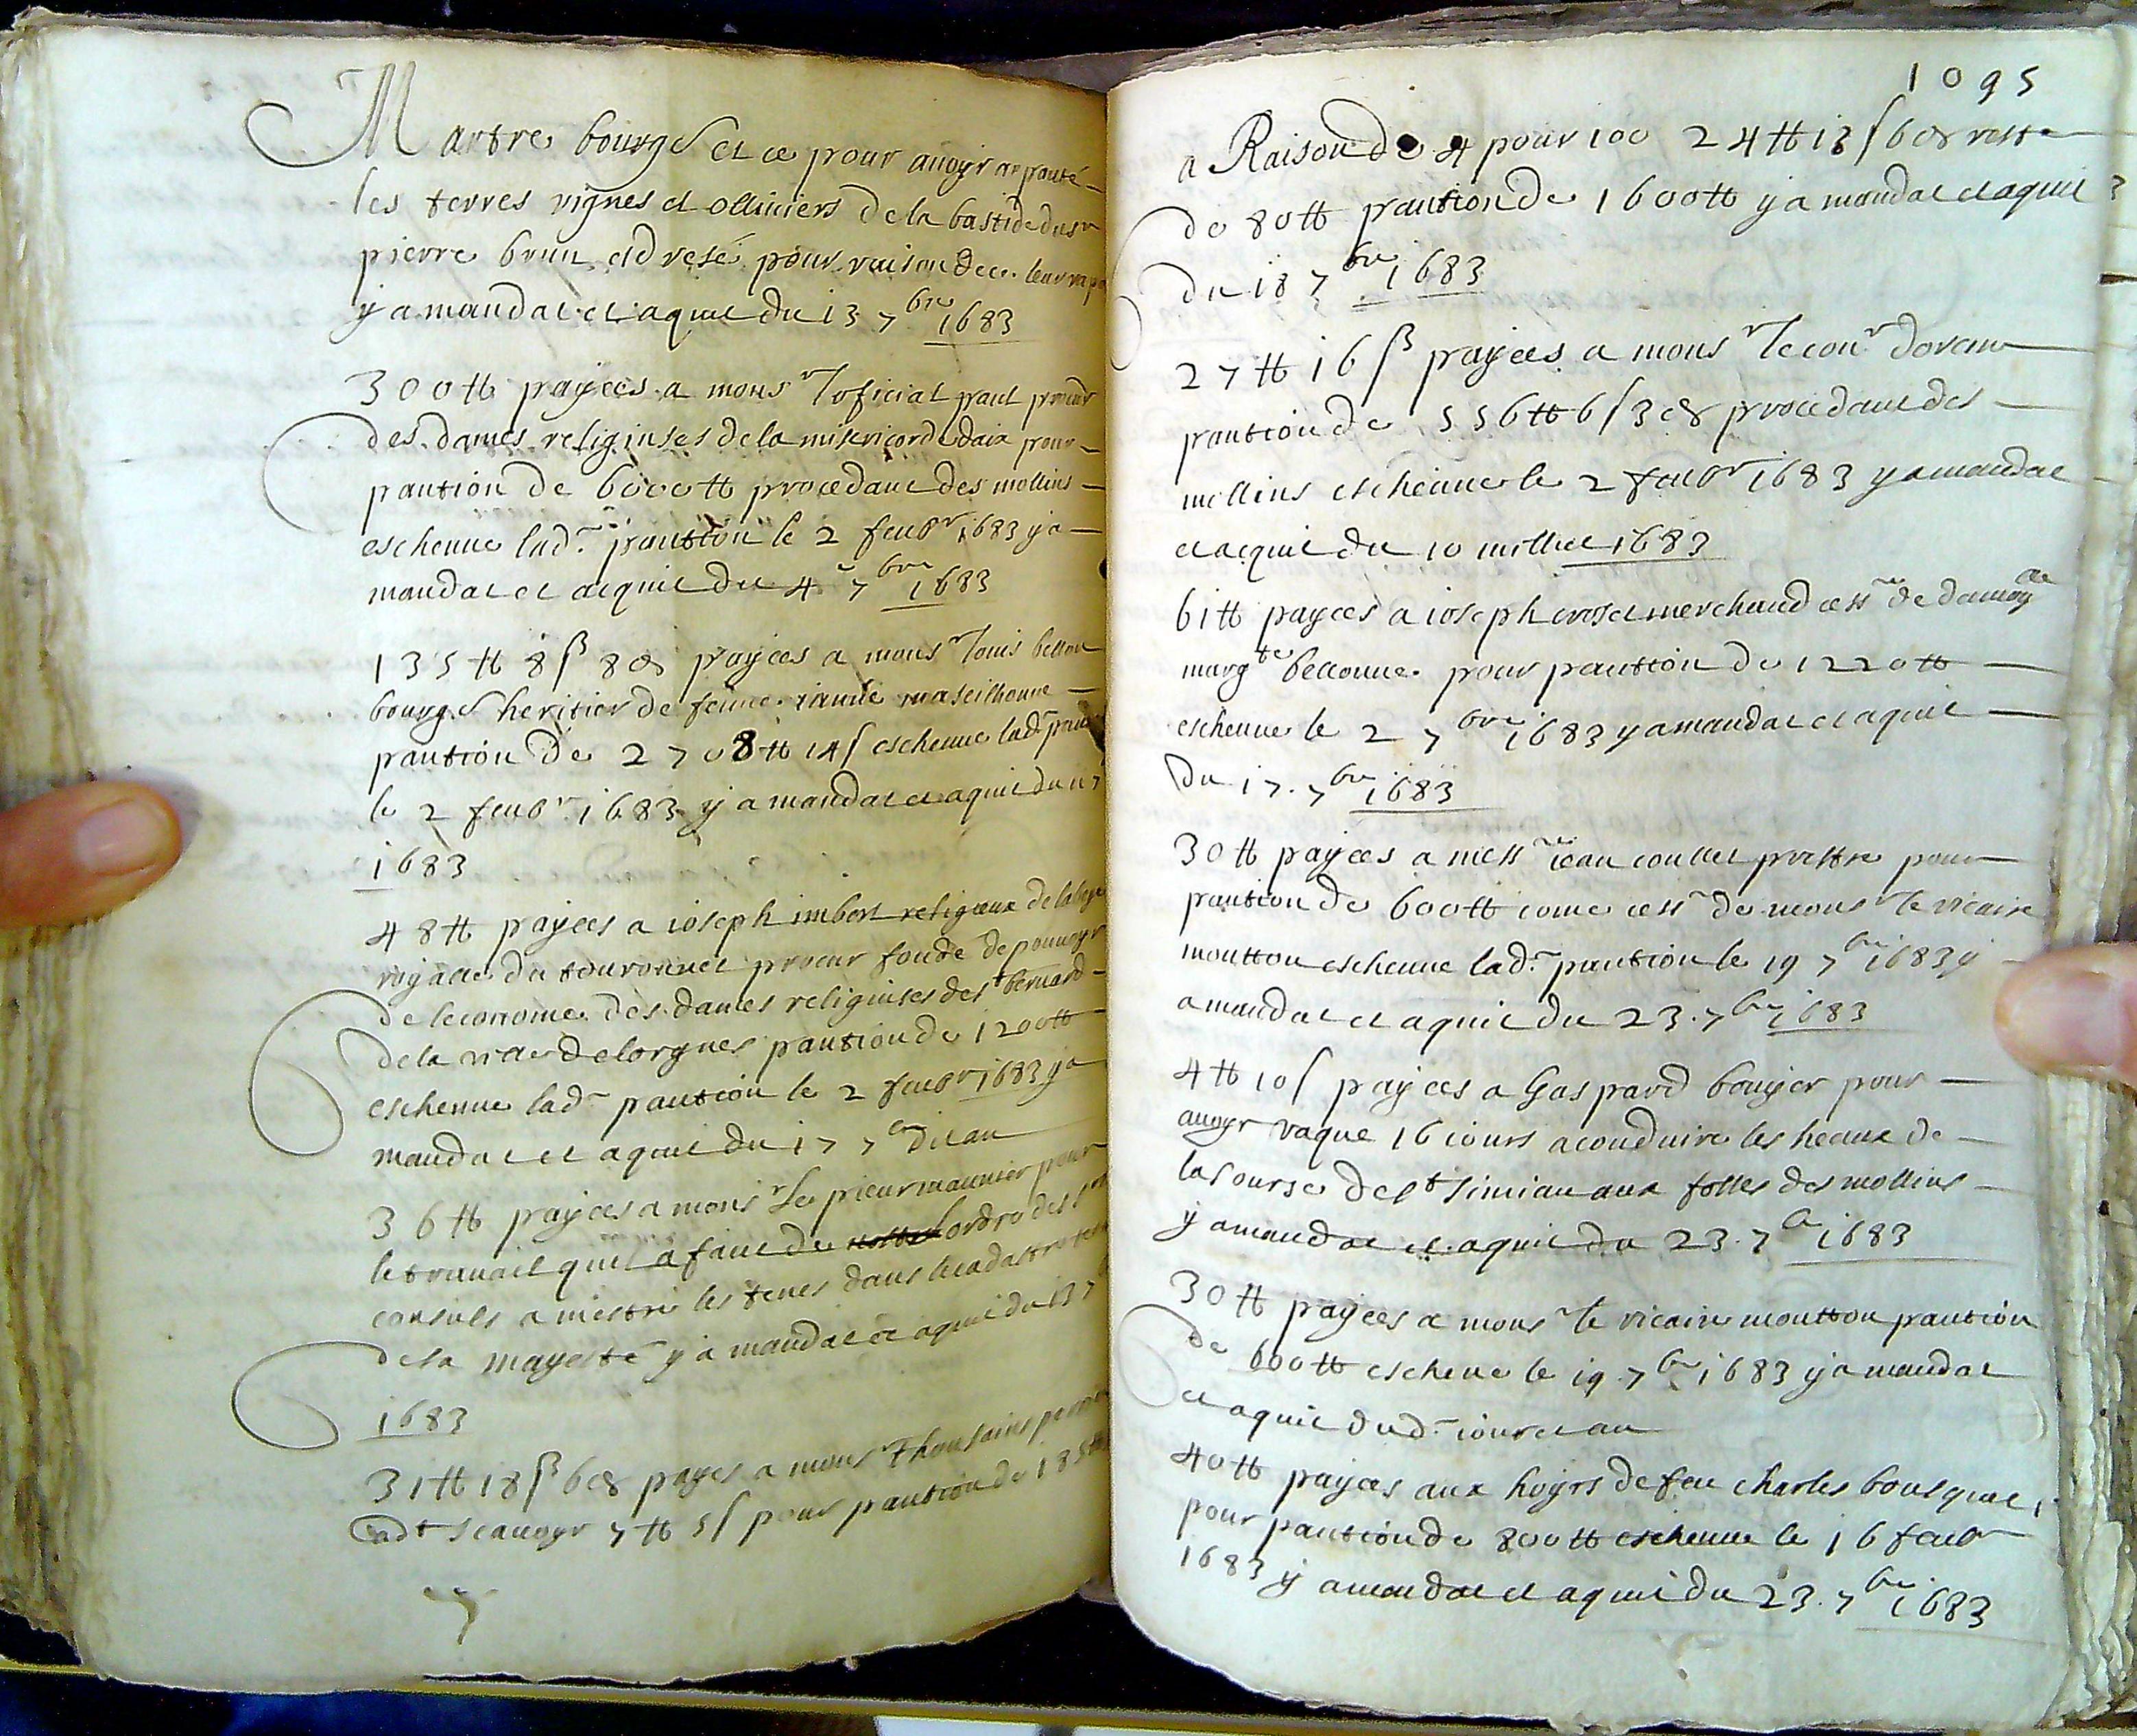 Martre bourgs et ce pour avoyr arpanté
les terres vignes et olliviers de la bastide du sr
pierre brun et dresé pour raison de ce leur rap
y a mandat et aquit du 13 7bre 1683
300 tt payees a monsr loficial paul
des dames religiuses de la misericorde daix pour
pantion de 6000 tt procedant des mollins
escheue lad. pantion le 2 feubr 1683 y a
mandat et acquit du 4 7bre 1683
135 tt 8 s 8 d payees a monsr louis bellon
bourgs heritier de feüe masseilhonne
pantion de 2708 tt 14 s escheue lad pan
le 2 feubr 1683 y a mandat et aquit du 17
1683
48 tt payees a ioseph imbert religieux de labaye
royalle du touronnet procur fondé de pouuoyr
de leconome des dames religiuses de st bernard
de la ville de lorgues pantion de 1200 tt
escheue lad pantion le 2 feubr 1683 y a
mandat et aquit du 17 7bre dit an
36 tt payees a monsr le prieur maunier pour
le trauail quil a faict de lordre des srs
consuls a mestre les terres dans le cadastre
de sa mayesté y a mandat et aquit du 13 7
1683
31 tt 18 s 6 d payes a monsr thousains
adt scauoyr 7 tt 5 s pour pantion de 185 tt
1095
a Raison de 4 pour 100 24 tt 13 s 6 d reste
de 80 tt pantion de 1600 tt y a mandat et aquit
du 18 7bre 1683
27 tt 16 s payees a monsr le conr
pantion de 556 tt 6 s 3 d procedant des
mollins escheue le 2 feubr 1683 y a mandat
et acquit du 10 iuillet 1683
61 tt payees a ioseph merchand cessre de damoylle
margte bellonne pour pantion de 1220 tt
escheue le 2 7bre 1683 y a mandat et aquit
du 17 7bre 1683
30 tt payees a messre iean coullet prestre pour
pantion de 600 tt come cessre de monsr le vicaire
moutton escheue lad. pantion le 19 7bre 1683 y
a mandat et aquit du 23 7bre 1683
4 tt 10 s payees a Gaspard bouyer pour
auoyr vaque 16 iours a conduire les heaux de
la sourse de st simian aux fosses des mollins
y a mandat et aquit du 23 7bre 1683
30 tt payees a monsr le vicaire moutton pantion
de 600 tt escheue le 19 7bre 1683 y a mandat
et aquit dud. iour et an
40 tt payees aux hoyrs de feu charles bousquet
pour pantion de 800 tt escheue le 16 feubr
1683 y a mandat et aquit du 23 7bre 1683